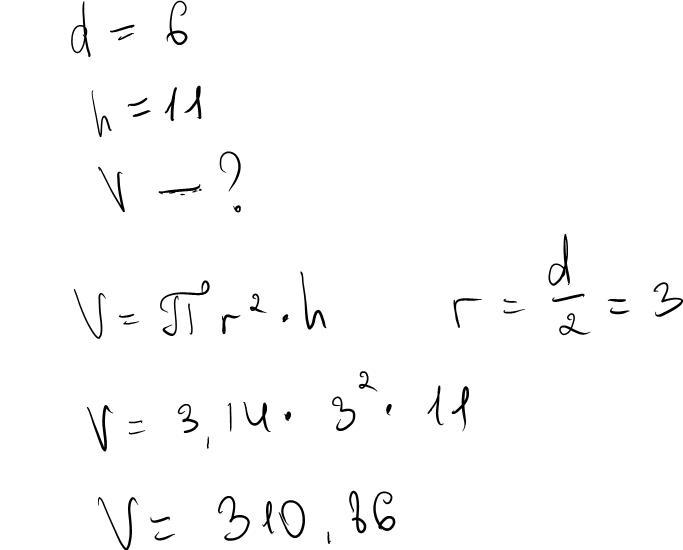 d = 6
h = 11
V — ?
V = πr² · h r = d/2 = 3
V = 3,14 · 3² · 11
V = 310,86